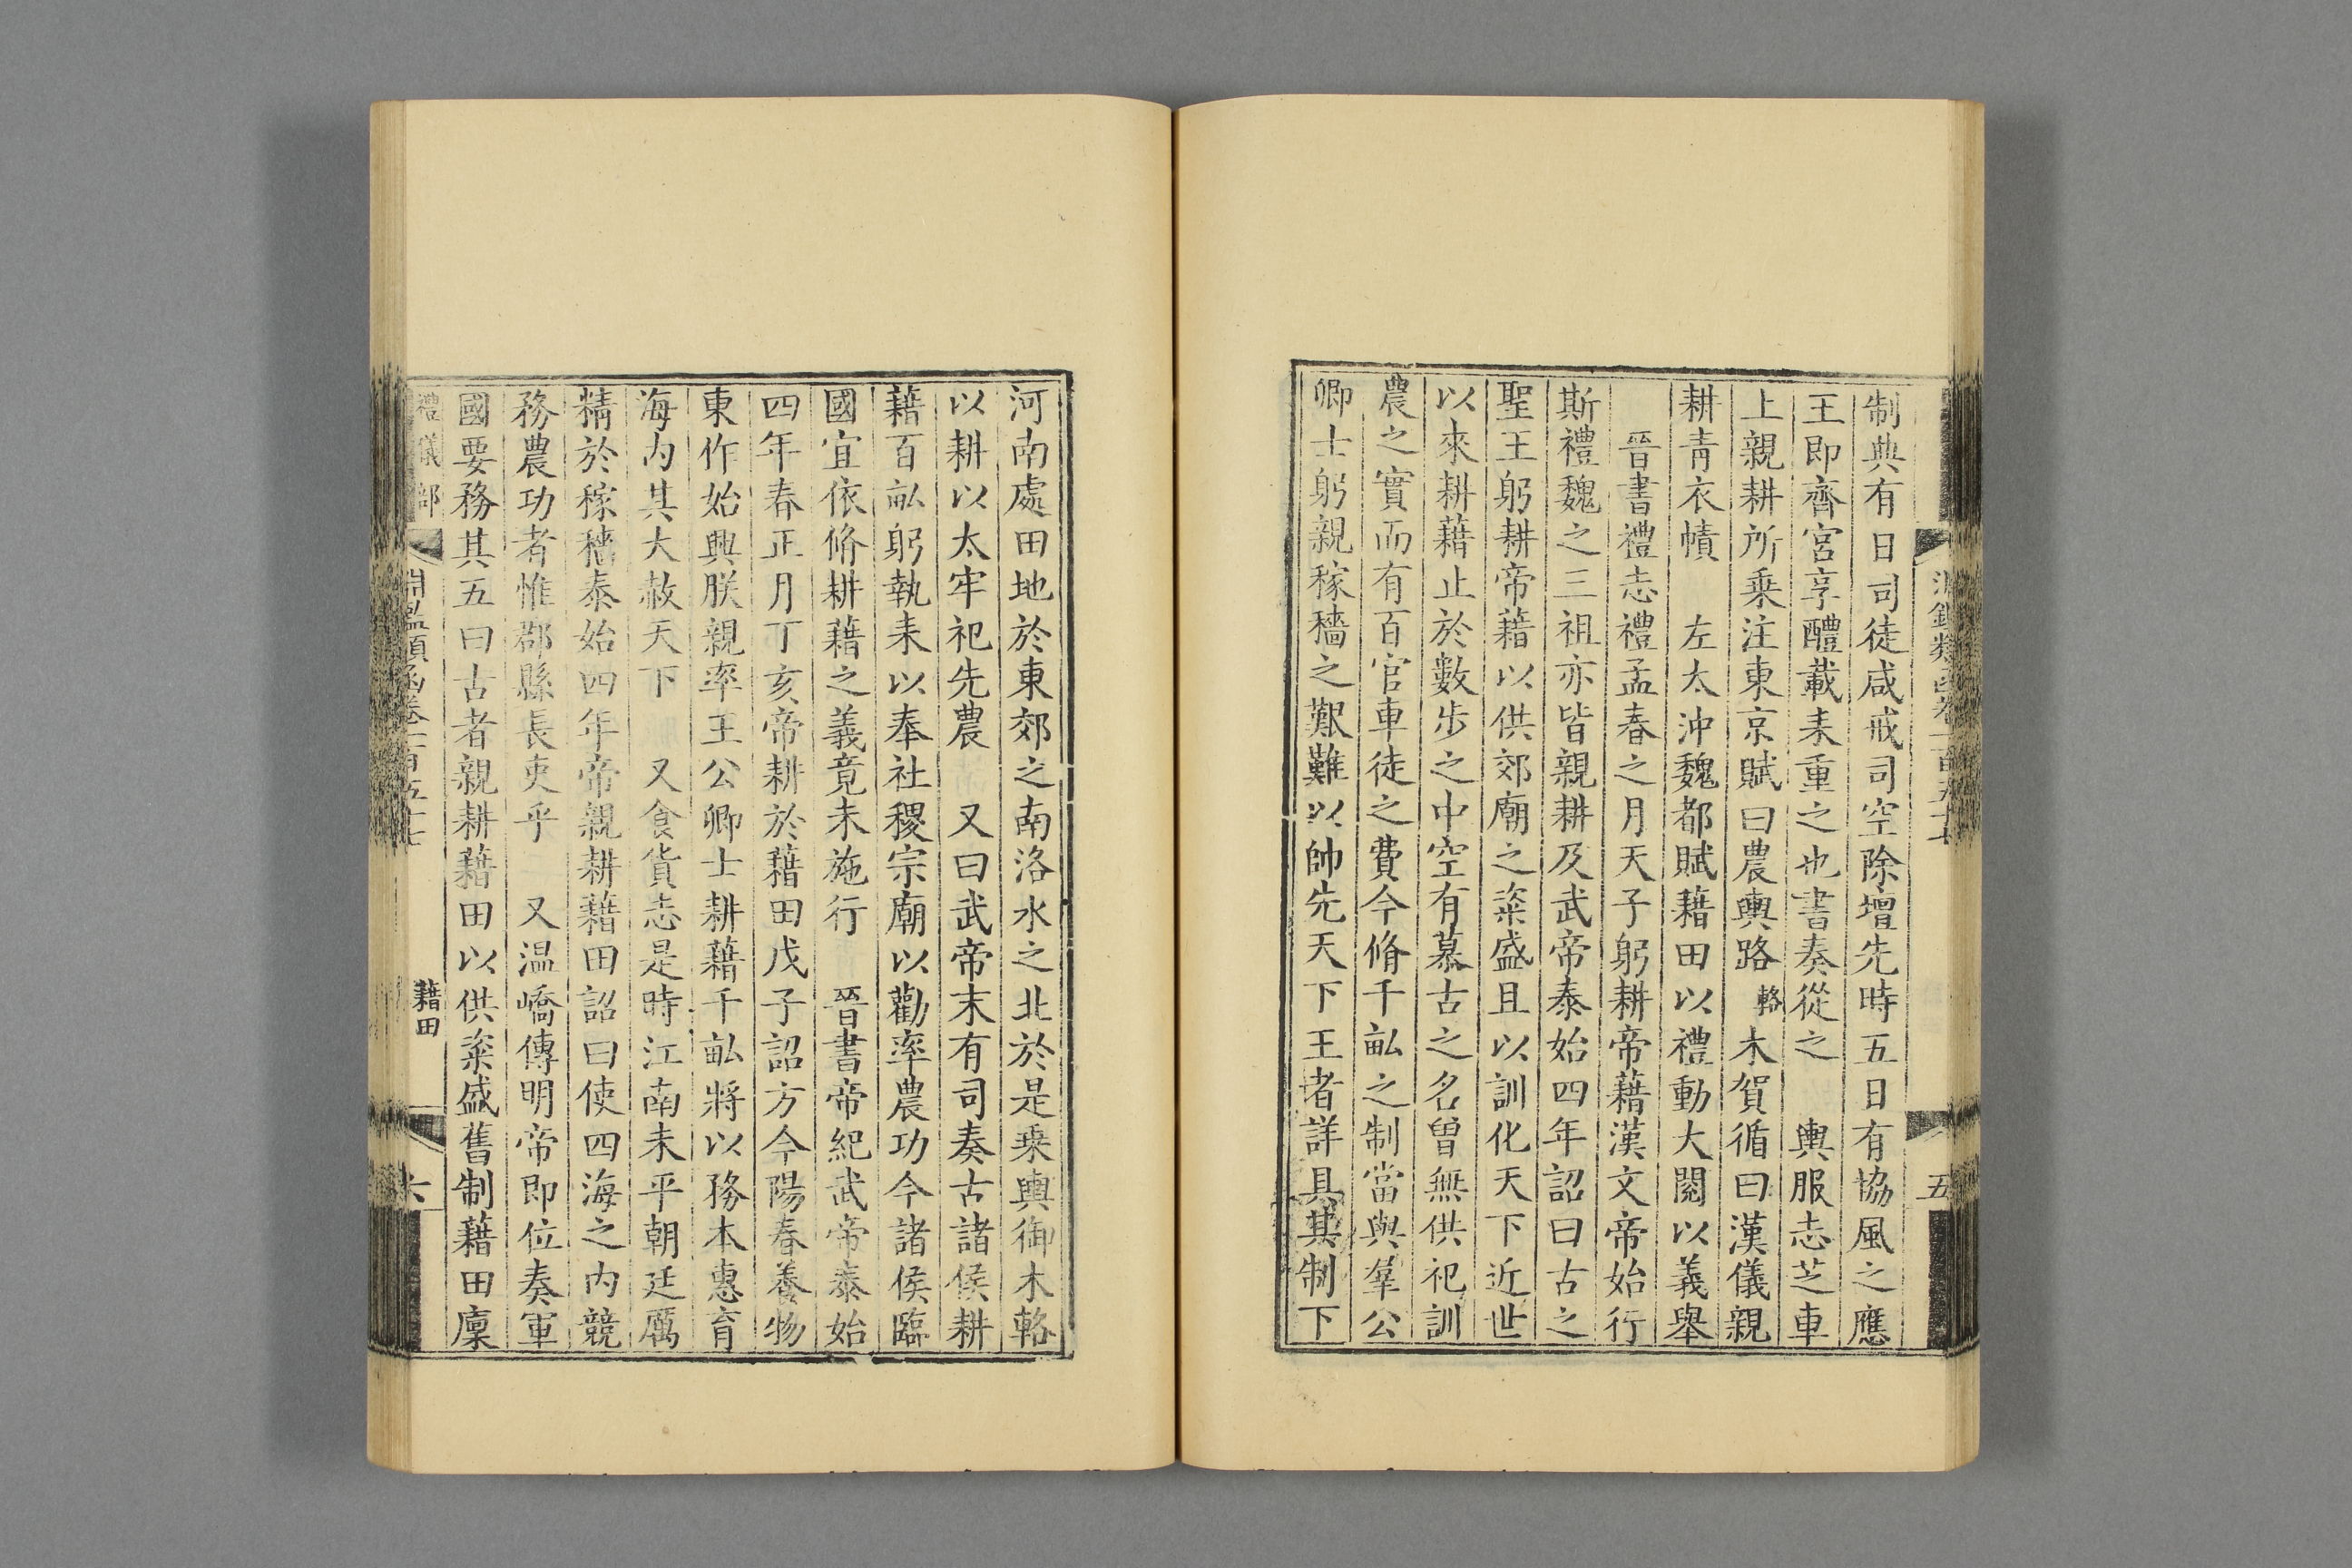 制典有日司徒咸戒司空除壇先時五日有協風之應
王即齊宮享醴載耒重之也書奏從之　輿服志芝車
上親耕所乗注東京賦曰農輿路輅木賀循曰漢儀親
耕青衣幘　左太沖魏都賦藉田以禮動大閱以義舉
晉書禮志禮孟春之月天子躬耕帝藉漢文帝始行
斯禮魏之三祖亦皆親耕及武帝泰始四年詔曰古之
聖王躬耕帝藉以供郊廟之粢盛且以訓化天下近世
以來耕藉止於數步之中空有慕古之名曽無供祀訓
農之實而有百官車徒之費今脩千畆之制當與羣公
卿士躬親稼穡之艱難以帥先天下王者詳具其制下
五
河南處田地於東郊之南洛水之北於是乗輿御木輅
以耕以太牢祀先農　又曰武帝末有司奏古諸侯耕
藉百畆躬執耒以奉社稷宗廟以勸率農功今諸侯臨
國宜依脩耕藉之義竟未施行　晉書帝紀武帝泰始
四年春正月丁亥帝耕於藉田戊子詔方今陽春養物
東作始興朕親率王公卿士耕藉千畆將以務本惠育
海内其大赦天下　又食貨志是時江南未平朝廷厲
精於稼穡泰始四年帝親耕藉田詔曰使四海之内競
務農功者惟郡縣長吏乎　又温嶠傳明帝即位奏軍
國要務其五曰古者親耕藉田以供粢盛舊制藉田廩
禮儀部
淵鑑類函卷一百五十七
藉田
六